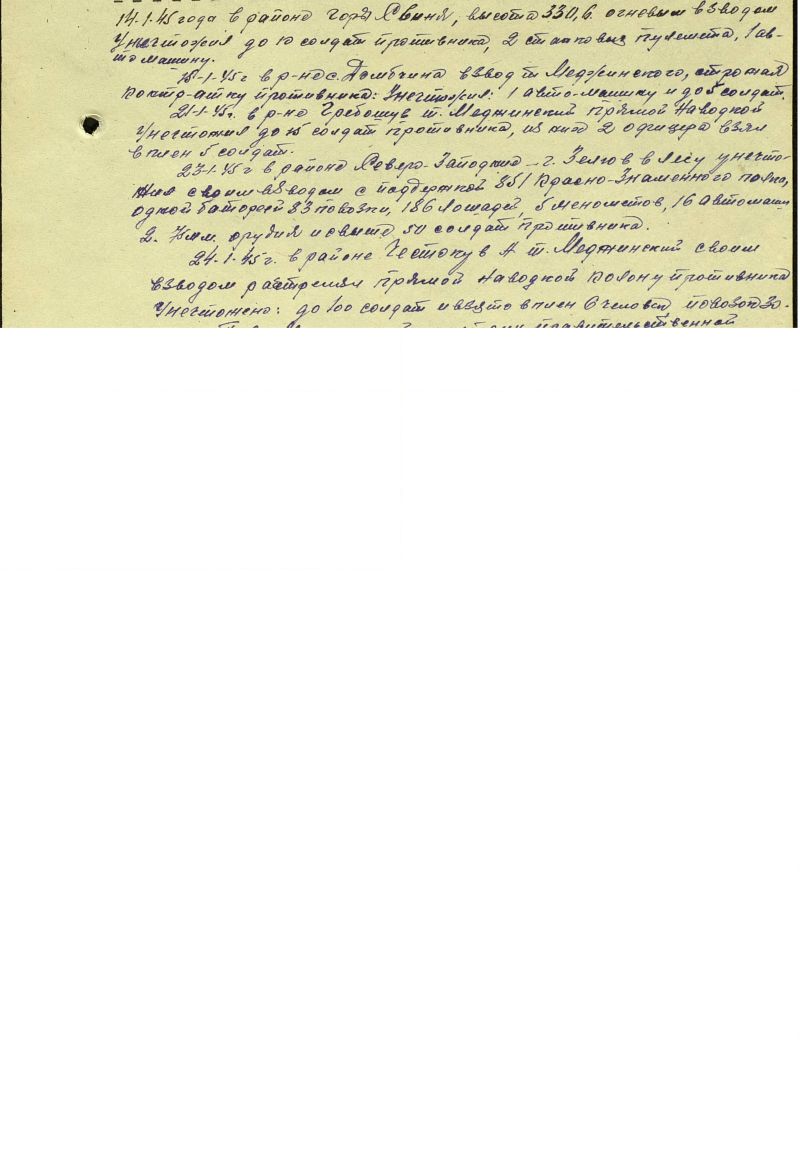 14.1.45 года в районе горы Свиня, высота 330,6. огневым взводом
Унечтожил до 10 солдат противника, 2 станковых пулемета, 1 ав-
то машину.
15-1-45 г в р-не с. Домбчина взвод т. Меджинского, отрожая
контр-атку противника: Унечтожил: 1 авто-машину и до 5 солдат.
21-1-45г. в р-но Гребошув т. Меджинский прямой Наводкой
Унечтожил до 15 солдат противника, из них 2 офицера взял
в плен 5 солдат.
23-1-45 г в районе Северо-Западние г. Зелюв в лесу унечто-
жил своим взводом с поддержкой 851 Красно-Знаменного полка,
одной батореей 83 повозки, 186 Лошадей, 5 менометов, 16 автомашин
2. орудия и свыше 50 солдат противника.
24-1-45 г. в районе Честокув А т. Меджинский своим
взводом растрелял прямой Наводкой Колону противника
Унечтожено: до 100 солдат и взято в плен 6 человек повозок 30.
правительственной